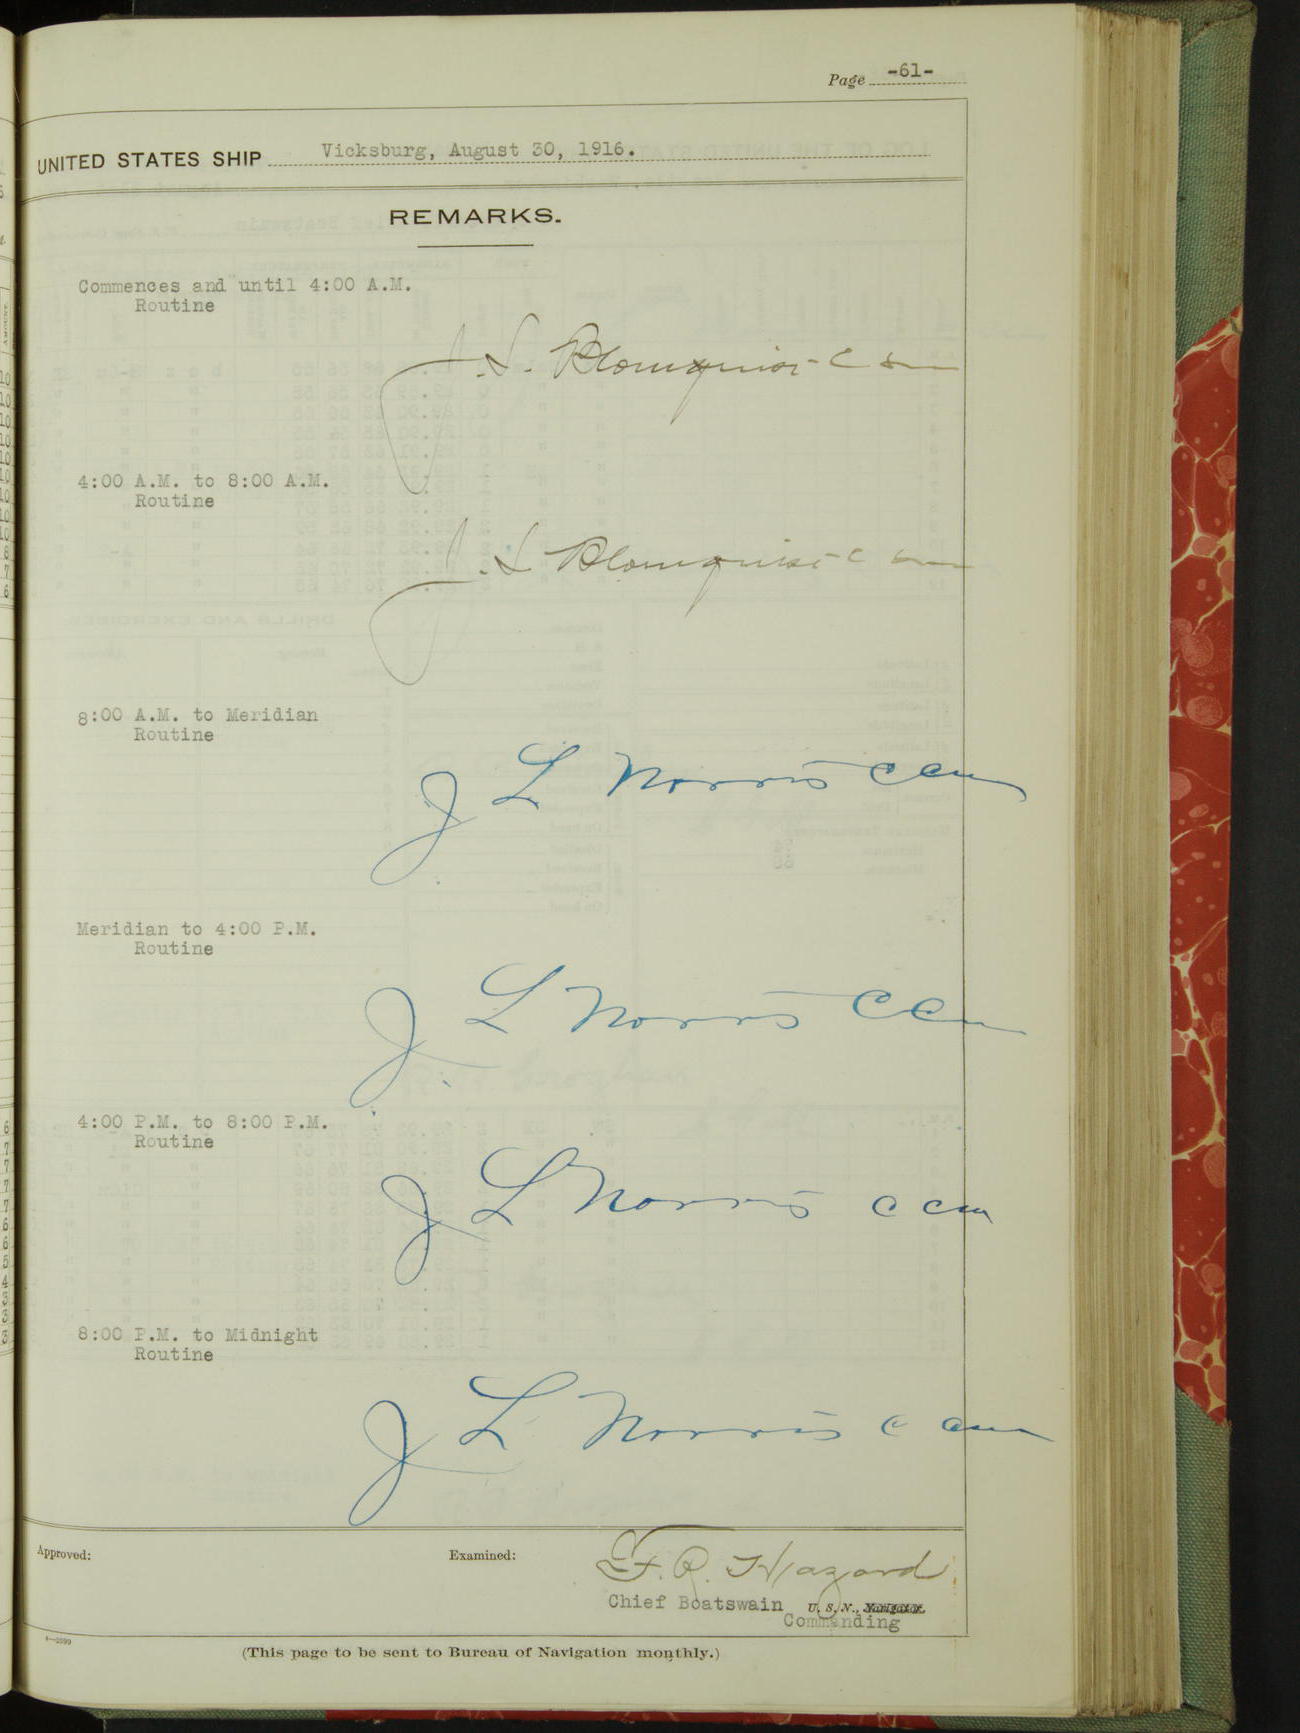 Page -61-
UNITED STATES SHIP Vicksburg, August 30, 1916.
REMARKS.
Commences and until 4:00 A.M.
Routine
J. L. Blomquist
4:00 A.M. to 8:00 A.M.
Routine
J. L. Blomquist
8:00 A.M. to Meridian
Routine
J L Norris CCM
Meridian to 4:00 P.M.
Routine
J L Norris CCM
4:00 P.M. to 8:00 P.M.
Routine
J L Norris CCM
8:00 P.M. to Midnight
Routine
J L Norris CCM
Approved:
Examined:
F. R. Hazard
Chief Boatswain U. S. N., Navigator.
Commanding
(This page to be sent to Bureau of Navigation monthly.)